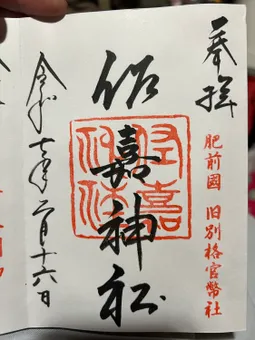 奉拝
肥前國 旧別格官幣社
佐嘉神社
令和七年二月十六日